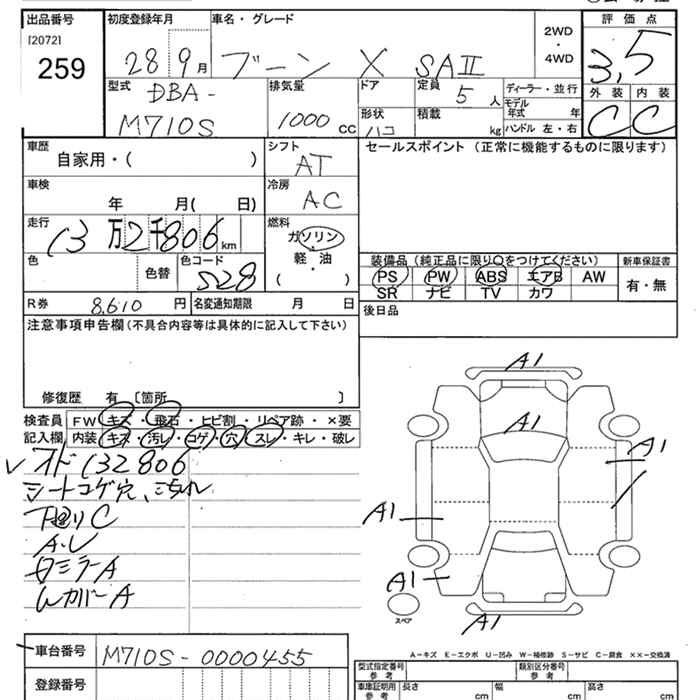 出品番号 初度登録年月 車名・グレード 2WD・4WD 評価点
[2072]
259 28 9月 ブーン X SAⅡ 3,5
型式 排気量 ドア 定員 ディーラー・並行 外装 内装
DBA- M710S 1000cc 5人 モデル年式 年 C C
形状 積載 kg ハンドル 左・右
ハコ
車歴 シフト セールスポイント(正常に機能するものに限ります)
自家用・( ) AT
車検 冷房
年 月( 日) AC
走行 燃料
13万2千806km ガソリン・軽油 ( )
色 色替 色コード 装備品(純正品に限り○をつけてください) 新車保証書
S28 PS PW ABS エアB AW 有・無
SR ナビ TV カワ
R券 8,610円 名変通知期限 月 日 後日品
注意事項申告欄(不具合内容等は具体的に記入して下さい)
修復歴 有 〔箇所 〕
検査員 FW キズ・飛石・ヒビ割・リペア跡・×要
記入欄 内装 キズ・汚レ・コゲ・穴・スレ・キレ・破レ
オド132806
シートコゲ穴、ヨゴレ
下廻りC
A.U
ミラーA
カバーA
A1
A1
A1
A1
A1
A1
スペア
車台番号 M710S-0000455
A-キズ E-エクボ U-凹み W-補修跡 S-サビ C-腐食 ××-交換済
型式指定番号 参考 類別区分番号 参考
登録番号 車庫証明用 参考 長さ cm 幅 cm 高さ cm